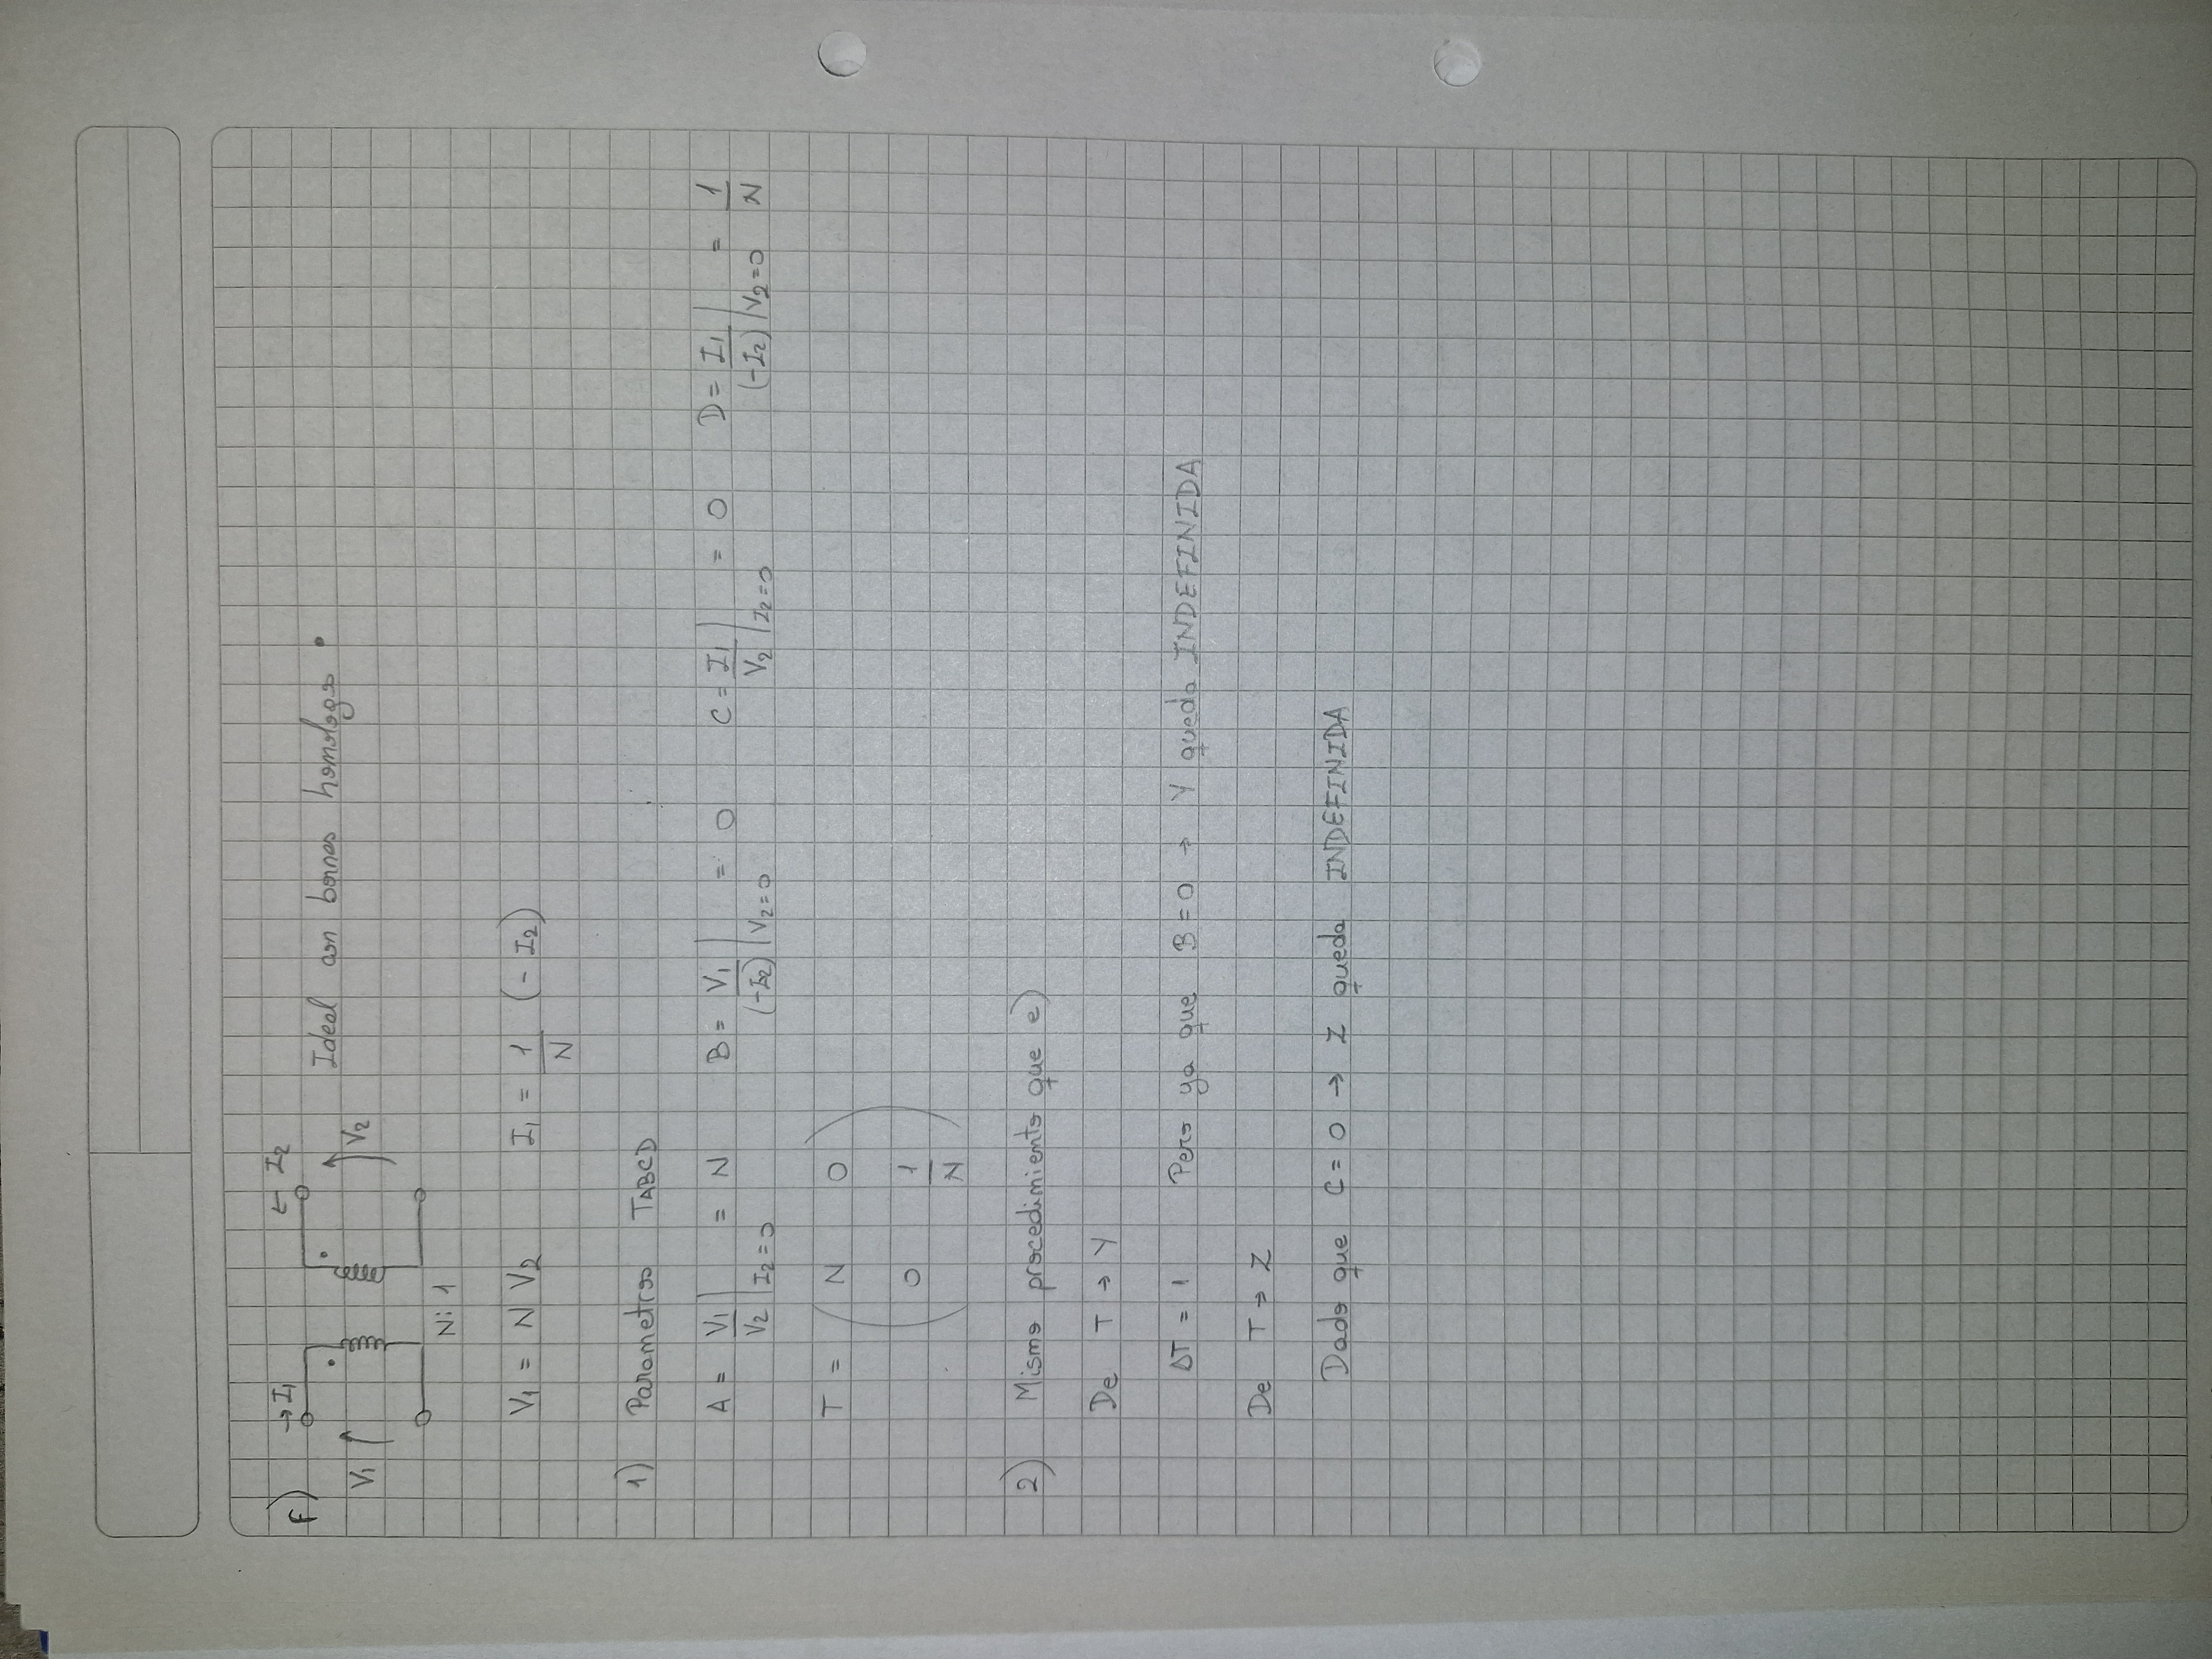 F)
→ I₁ ← I₂
V₁ V₂ Ideal con bornes homologos •
N: 1
V₁ = N V₂ I₁ = 1/N (- I₂)
1) Parametros TABCD
A = V₁/V₂ | I₂=0 = N B = V₁/(-I₂) | V₂=0 = 0 C = I₁/V₂ | I₂=0 = 0 D = I₁/(-I₂) | V₂=0 = 1/N
T = ( N 0
0 1/N )
2) Mismo procedimiento que e)
De T → Y
ΔT = 1 Pero ya que B = 0 → Y queda INDEFINIDA
De T → Z
Dado que C = 0 → Z queda INDEFINIDA